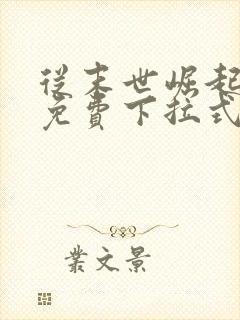 從末世崛起
免費下拉式
叢文景